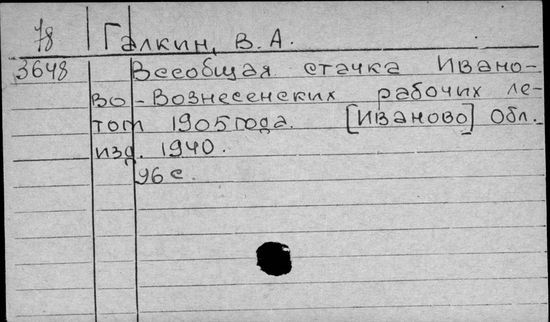 78 Галкин, В. А.
3648 Всеобщая стачка Ивано-
во-Вознесенских рабочих ле-
том 1905 года. [Иваново] Обл.
изд. 1940.
96 с.